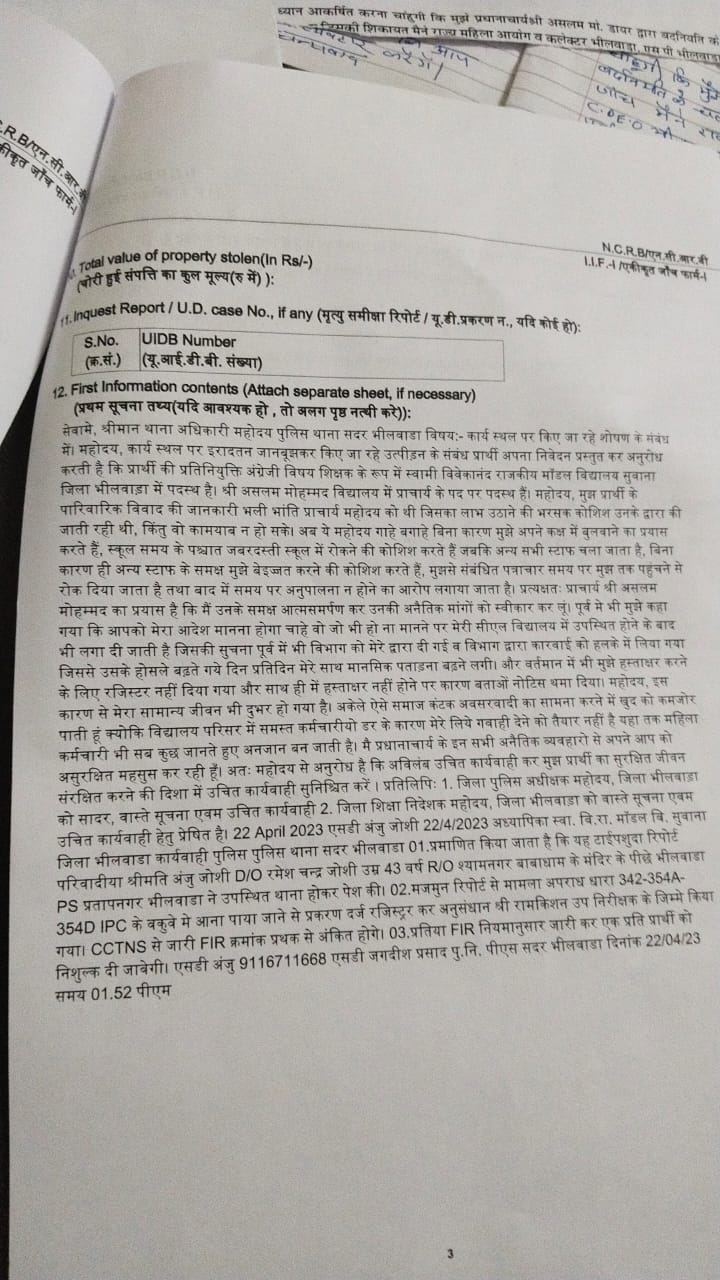 ध्यान आकर्षित करना चाहूंगी कि मुझे प्रधानाचार्यश्री असलम मां. डायर द्वारा बदनियति के
जिसकी शिकायत मैने राज्य महिला आयोग व कलेक्टर भीलवाड़ा, एस पी भीलवाडा
आप
धन्यवाद करेंगे।
कि मुझे
बदनियति के
जांच मैने
C.D.E.O
C.R.B/एन.सी.आर.बी
कीकृत जाँच फार्म-I
N.C.R.B/एन.सी.आर.बी
I.I.F.-I /एकीकृत जाँच फार्म-I
Total value of property stolen(In Rs/-)
(चोरी हुई संपत्ति का कुल मूल्य(रु में) ):
11. Inquest Report / U.D. case No., if any (मृत्यु समीक्षा रिपोर्ट / यू.डी.प्रकरण न., यदि कोई हो):
S.No. UIDB Number
(क्र.सं.) (यू.आई.डी.बी. संख्या)
12. First Information contents (Attach separate sheet, if necessary)
(प्रथम सूचना तथ्य(यदि आवश्यक हो , तो अलग पृष्ठ नत्थी करे)):
सेवामे, श्रीमान थाना अधिकारी महोदय पुलिस थाना सदर भीलवाडा विषय:- कार्य स्थल पर किए जा रहे शोषण के संबंध
में। महोदय, कार्य स्थल पर इरादतन जानबूझकर किए जा रहे उत्पीड़न के संबंध प्रार्थी अपना निवेदन प्रस्तुत कर अनुरोध
करती है कि प्रार्थी की प्रतिनियुक्ति अंग्रेजी विषय शिक्षक के रूप में स्वामी विवेकानंद राजकीय मॉडल विद्यालय सुवाना
जिला भीलवाड़ा में पदस्थ है। श्री असलम मोहम्मद विद्यालय में प्राचार्य के पद पर पदस्थ हैं। महोदय, मुझ प्रार्थी के
पारिवारिक विवाद की जानकारी भली भांति प्राचार्य महोदय को थी जिसका लाभ उठाने की भरसक कोशिश उनके द्वारा की
जाती रही थी, किंतु वो कामयाब न हो सके। अब ये महोदय गाहे बगाहे बिना कारण मुझे अपने कक्ष में बुलवाने का प्रयास
करते हैं, स्कूल समय के पश्चात जबरदस्ती स्कूल में रोकने की कोशिश करते हैं जबकि अन्य सभी स्टाफ चला जाता है, बिना
कारण ही अन्य स्टाफ के समक्ष मुझे बेइज्जत करने की कोशिश करते हैं, मुझसे संबंधित पत्राचार समय पर मुझ तक पहुंचने से
रोक दिया जाता है तथा बाद में समय पर अनुपालना न होने का आरोप लगाया जाता है। प्रत्यक्षतः प्राचार्य श्री असलम
मोहम्मद का प्रयास है कि मैं उनके समक्ष आत्मसमर्पण कर उनकी अनैतिक मांगों को स्वीकार कर लूं। पूर्व मे भी मुझे कहा
गया कि आपको मेरा आदेश मानना होगा चाहे वो जो भी हो ना मानने पर मेरी सीएल विद्यालय में उपस्थित होने के बाद
भी लगा दी जाती है जिसकी सुचना पूर्व में भी विभाग को मेरे द्वारा दी गई व विभाग द्वारा कारवाई को हलके में लिया गया
जिससे उसके होसले बढ़ते गये दिन प्रतिदिन मेरे साथ मानसिक पताड़ना बढ़ने लगी। और वर्तमान में भी मुझे हस्ताक्षर करने
के लिए रजिस्टर नहीं दिया गया और साथ ही में हस्ताक्षर नहीं होने पर कारण बताओं नोटिस थमा दिया। महोदय, इस
कारण से मेरा सामान्य जीवन भी दुभर हो गया है। अकेले ऐसे समाज कंटक अवसरवादी का सामना करने में खुद को कमजोर
पाती हूं क्योकि विद्यालय परिसर में समस्त कर्मचारीयो डर के कारण मेरे लिये गवाही देने को तैयार नहीं है यहा तक महिला
कर्मचारी भी सब कुछ जानते हुए अनजान बन जाती है। मै प्रधानाचार्य के इन सभी अनैतिक व्यवहारो से अपने आप को
असुरक्षित महसुस कर रही हूँ। अतः महोदय से अनुरोध है कि अविलंब उचित कार्यवाही कर मुझ प्रार्थी का सुरक्षित जीवन
संरक्षित करने की दिशा में उचित कार्यवाही सुनिश्चित करें । प्रतिलिपिः 1. जिला पुलिस अधीक्षक महोदय, जिला भीलवाड़ा
को सादर, वास्ते सूचना एवम उचित कार्यवाही 2. जिला शिक्षा निदेशक महोदय, जिला भीलवाडा को वास्ते सूचना एवम
उचित कार्यवाही हेतु प्रेषित है। 22 April 2023 एसडी अंजु जोशी 22/4/2023 अध्यापिका स्वा. वि.रा. मॉडल वि. सुवाना
जिला भीलवाडा कार्यवाही पुलिस पुलिस थाना सदर भीलवाडा 01.प्रमाणित किया जाता है कि यह टाईपशुदा रिपोर्ट
परिवादीया श्रीमति अंजु जोशी D/O रमेश चन्द्र जोशी उम्र 43 वर्ष R/O श्यामनगर बाबाधाम के मंदिर के पीछे भीलवाडा
PS प्रतापनगर भीलवाडा ने उपस्थित थाना होकर पेश की। 02.मजमुन रिपोर्ट से मामला अपराध धारा 342-354A-
354D IPC के वकुवे मे आना पाया जाने से प्रकरण दर्ज रजिस्ट्रर कर अनुसंधान श्री रामकिशन उप निरीक्षक के जिम्मे किया
गया। CCTNS से जारी FIR क्रमांक प्रथक से अंकित होगे। 03.प्रतिया FIR नियमानुसार जारी कर एक प्रति प्रार्थी को
निशुल्क दी जावेगी। एसडी अंजु 9116711668 एसडी जगदीश प्रसाद पु.नि. पीएस सदर भीलवाडा दिनांक 22/04/23
समय 01.52 पीएम
3